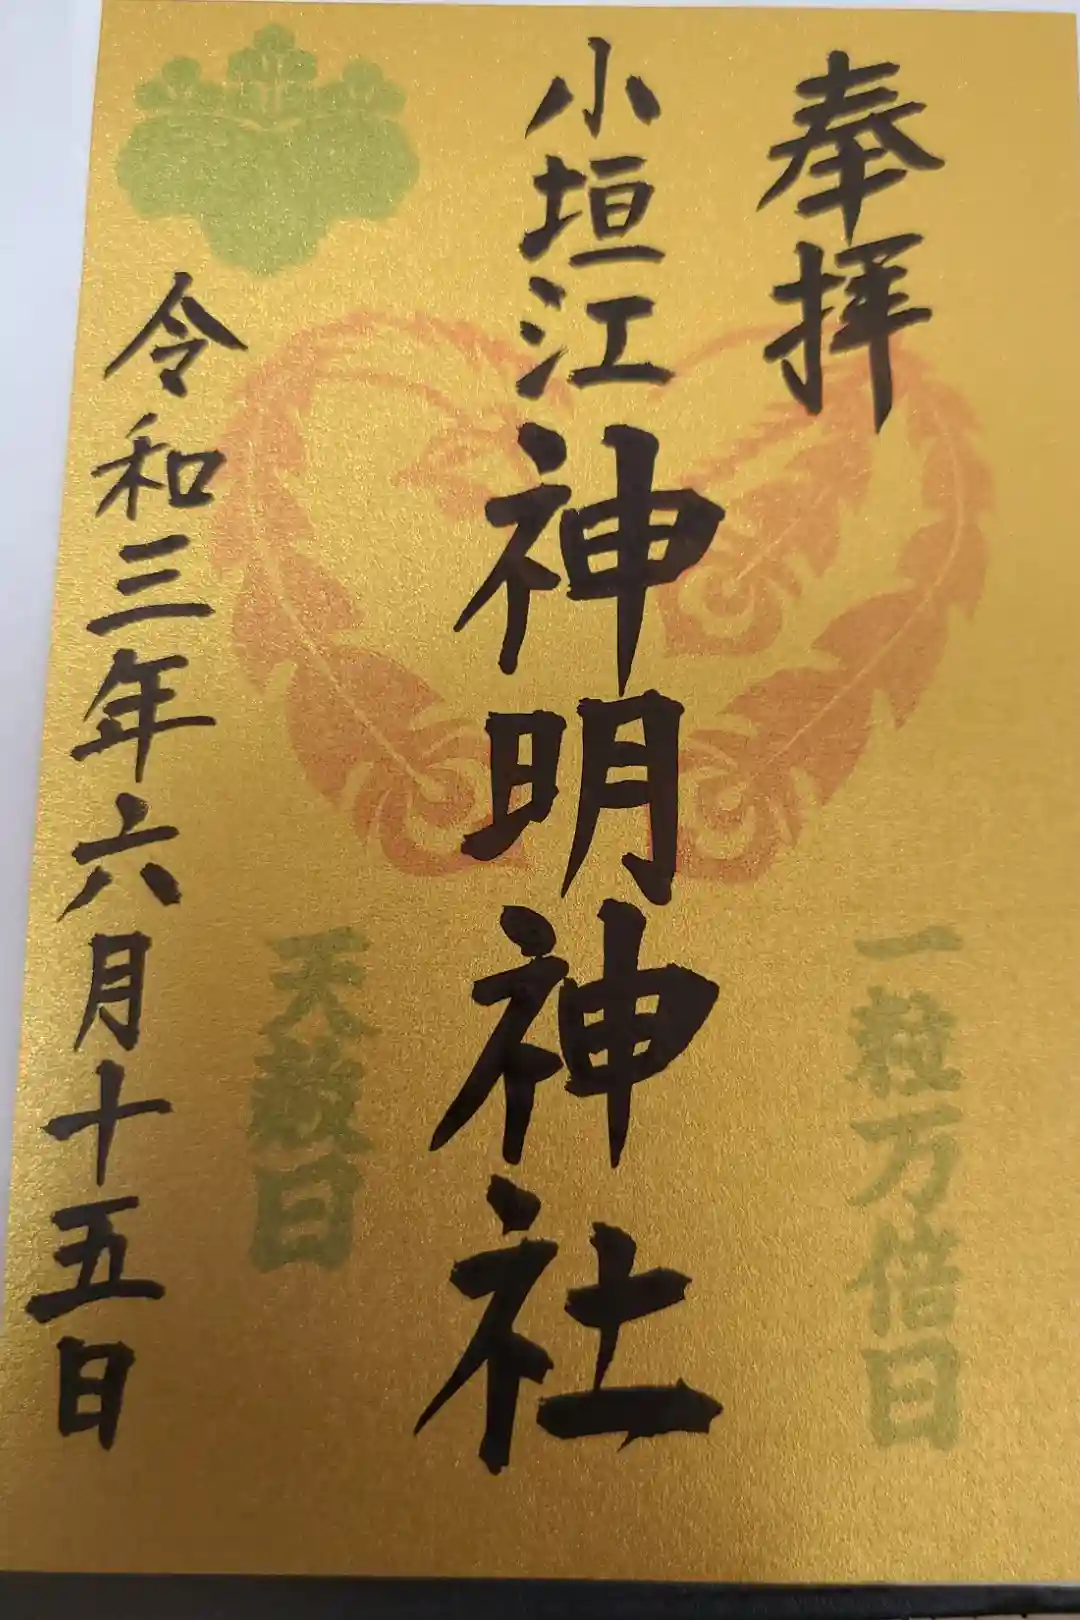 奉拝
一粒万倍日
小垣江
神明神社
天赦日
令和三年六月十五日